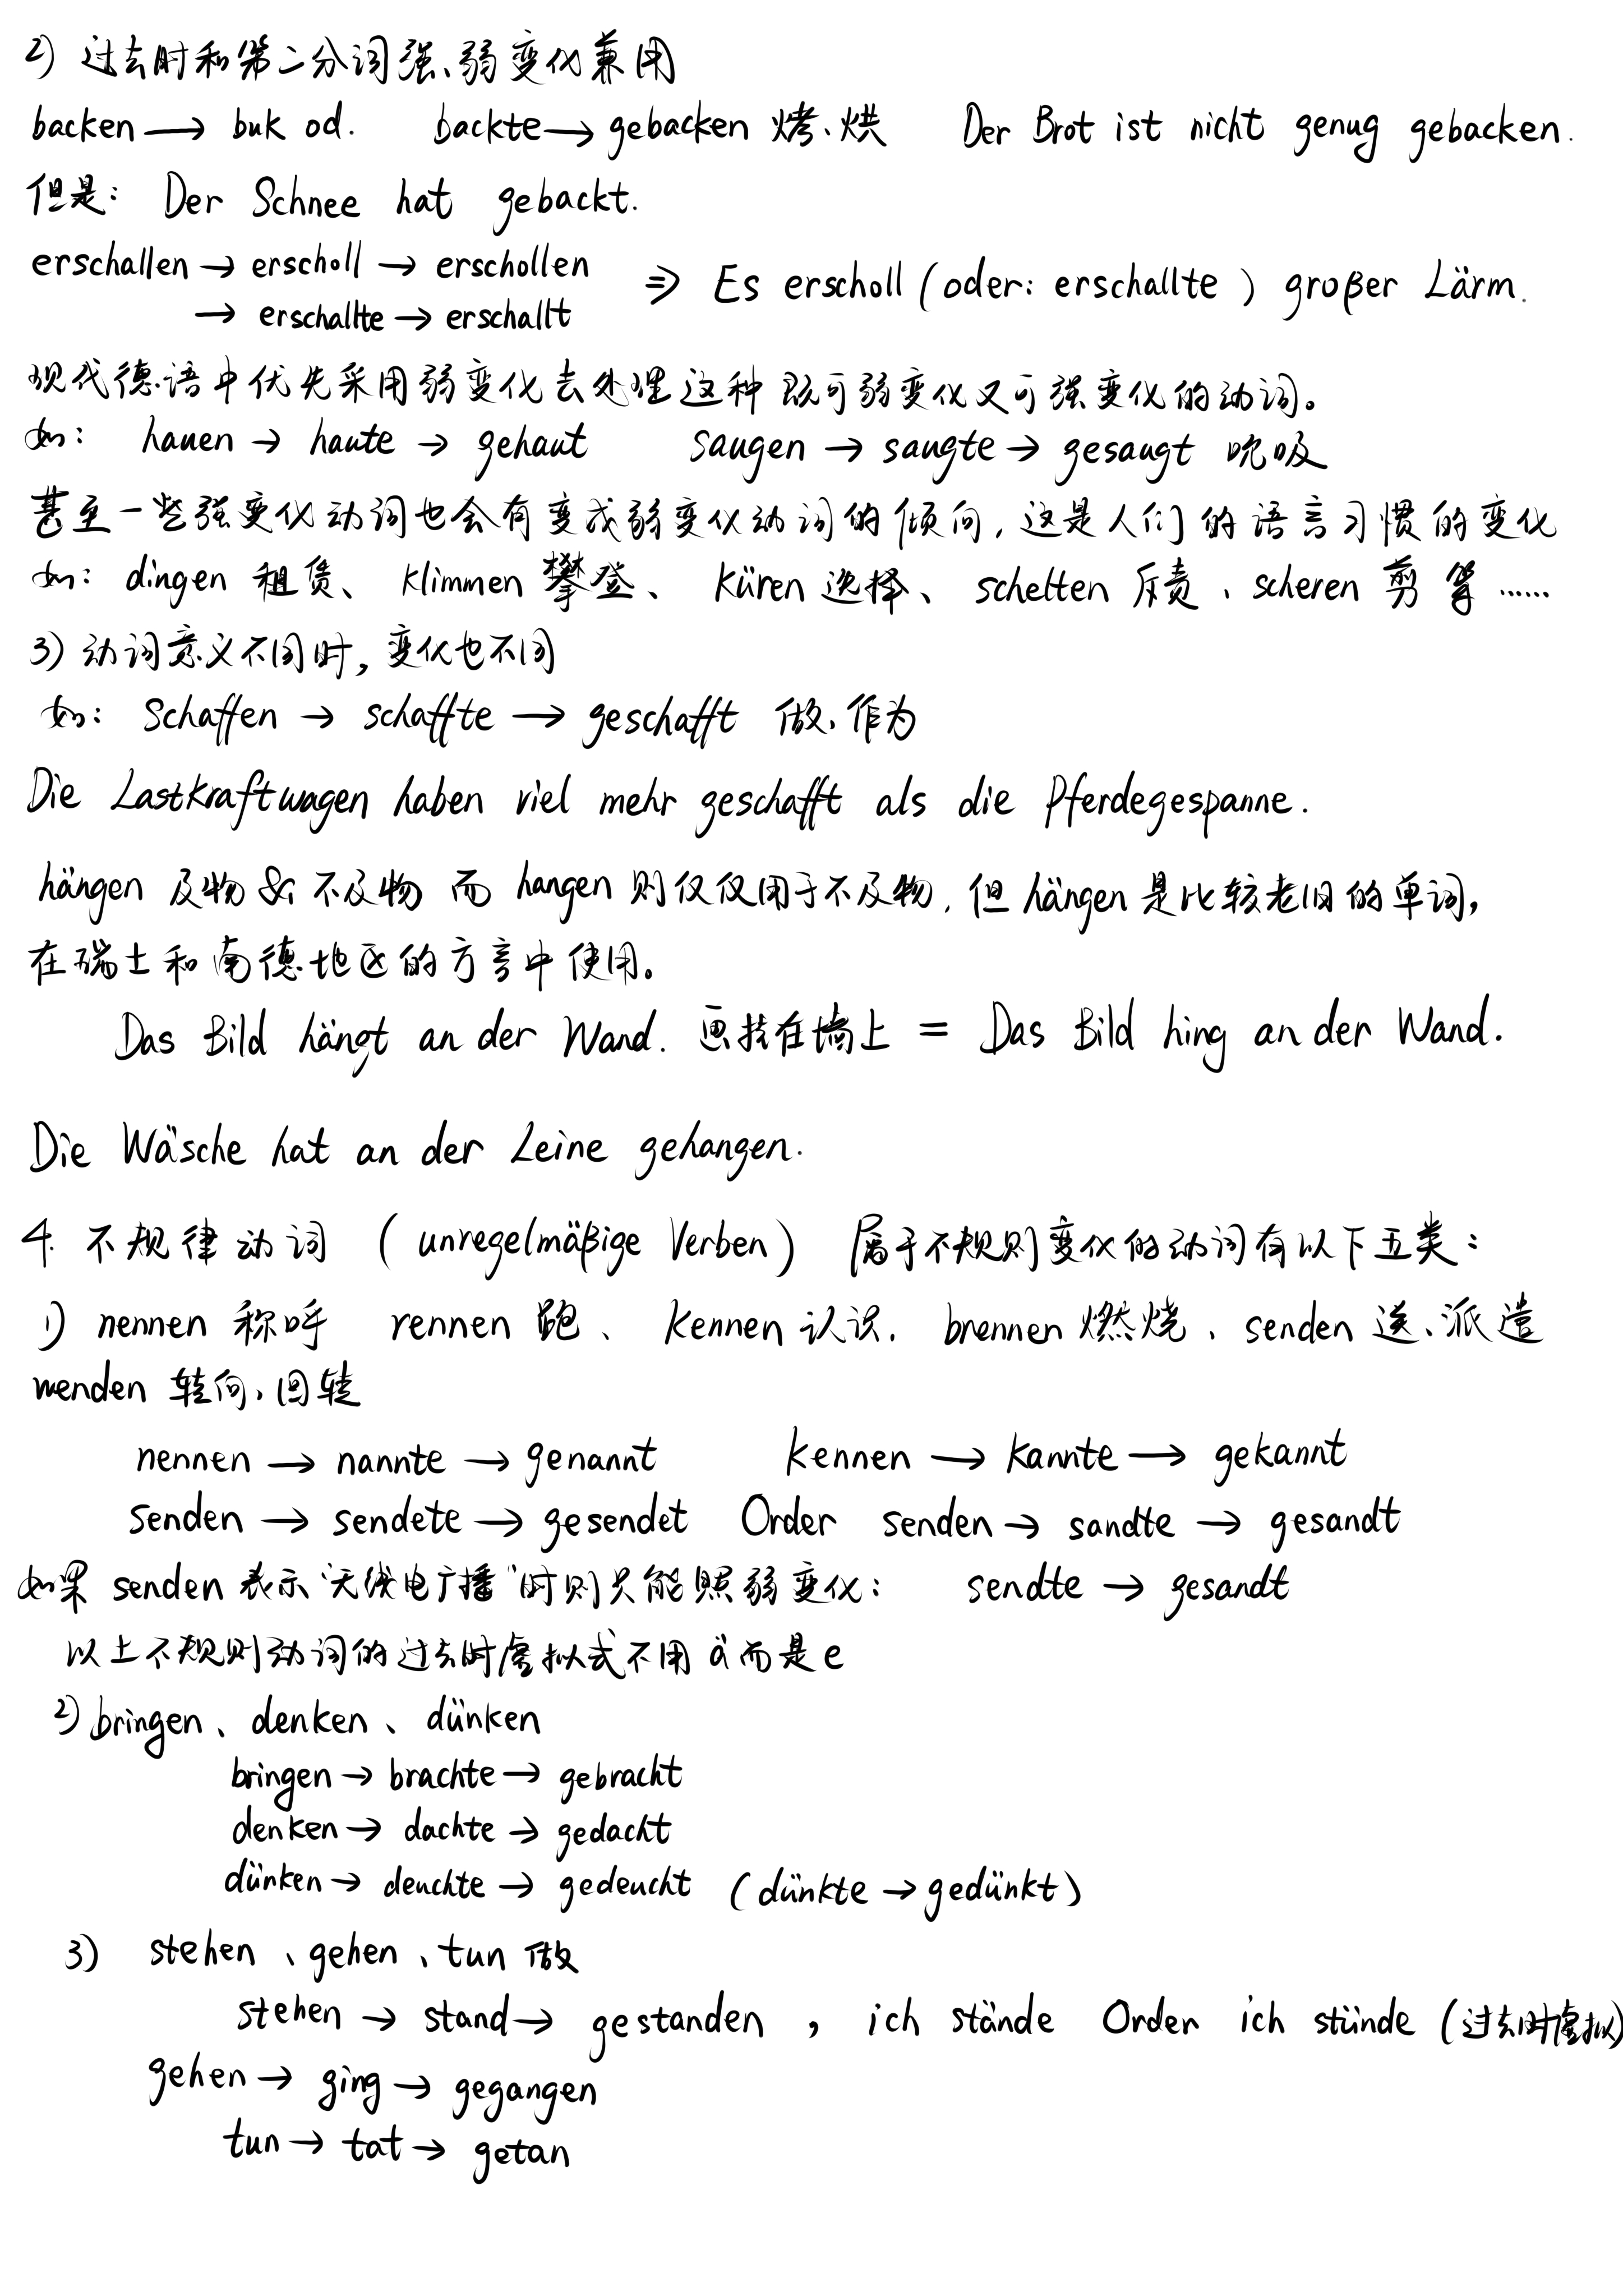 2) 过去时和第二分词强、弱变化兼用
backen → buk od. backte → gebacken 烤、烘 Der Brot ist nicht genug gebacken.
但是: Der Schnee hat gebackt.
erschallen → erscholl → erschollen
→ erschallte → erschallt ⇒ Es erscholl (oder: erschallte) großer Lärm.
现代德语中优先采用弱变化去处理这种既可弱变化又可强变化的动词。
如: hauen → haute → gehaut saugen → saugte → gesaugt 吮吸
甚至一些强变化动词也会有变成弱变化动词的倾向, 这是人们的语言习惯的变化
如: dingen 租赁、 klimmen 攀登、 küren 选择、 schelten 斥责、scheren 剪 等 ……
3) 动词意义不同时, 变化也不同
如: Schaffen → schaffte → geschafft 做、作为
Die Lastkraftwagen haben viel mehr geschafft als die Pferdegespanne.
hängen 及物 & 不及物 而 hangen 则仅仅用于不及物, 但 hängen 是比较老旧的单词,
在瑞士和南德地区的方言中使用。
Das Bild hängt an der Wand. 画挂在墙上 = Das Bild hing an der Wand.
Die Wäsche hat an der Leine gehangen.
4. 不规律动词 (unregelmäßige Verben) 属于不规则变化的动词有以下五类:
1) nennen 称呼 rennen 跑、 kennen 认识. brennen 燃烧、senden 送、派遣
wenden 转向、回转
nennen → nannte → genannt kennen → kannte → gekannt
senden → sendete → gesendet Order senden → sandte → gesandt
如果 senden 表示"无线电广播"时则只能照弱变化: sendte → gesandt
以上不规则动词的过去时虚拟式不用 ä 而是 e
2) bringen、denken、dünken
bringen → brachte → gebracht
denken → dachte → gedacht
dünken → deuchte → gedeucht (dünkte → gedünkt)
3) stehen、gehen、tun 做
stehen → stand → gestanden , ich stände Order ich stünde (过去时虚拟)
gehen → ging → gegangen
tun → tat → getan